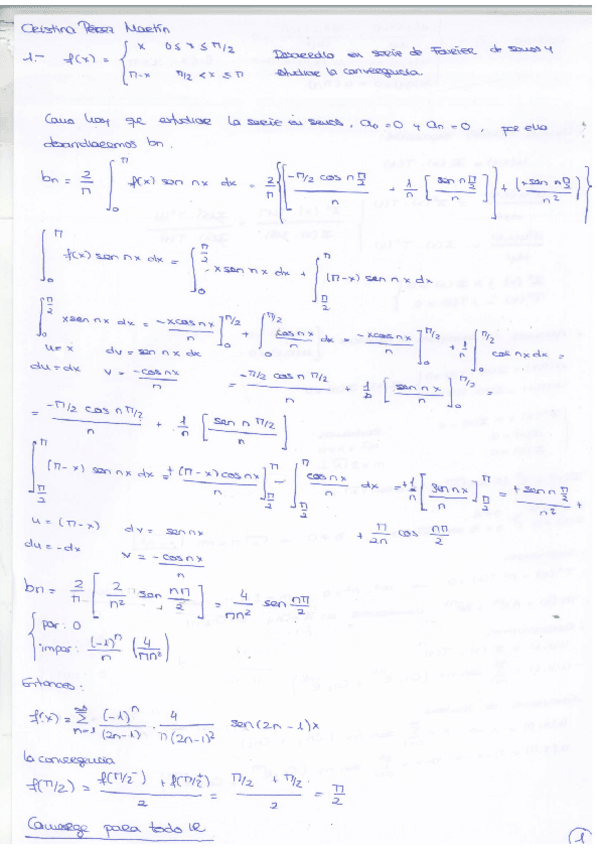 Cristina Pérez Martín
1.- f(x) = { x 0 ≤ x ≤ π/2 Desarrollo en serie de Fourier de senos y
π-x π/2 < x ≤ π estudiar la convergencia.
Como hay que estudiar la serie en senos, a₀ = 0 y aₙ = 0, por ello
desarrollaremos bn.
bn = 2/π ∫₀^π f(x) sen nx dx = 2/π {[-π/2 cos n π/2 / n + 1/n [sen n π/2 / n]] + (+sen n π/2 / n²)}
∫₀^π f(x) sen nx dx = ∫₀^{π/2} x sen nx dx + ∫_{π/2}^π (π-x) sen nx dx
∫₀^{π/2} x sen nx dx = -x cos nx / n ]₀^{π/2} + ∫₀^{π/2} cos nx / n dx = -x cos nx / n ]₀^{π/2} + 1/n ∫₀^{π/2} cos nx dx =
u = x dv = sen nx dx
du = dx v = -cos nx / n = -π/2 cos n π/2 / n + 1/n [ sen nx / n ]₀^{π/2} =
= -π/2 cos n π/2 / n + 1/n [ sen n π/2 / n ]
∫_{π/2}^π (π-x) sen nx dx = + (π-x) cos nx / n ]_{π/2}^π - ∫_{π/2}^π cos nx / n dx = + 1/n [ sen nx / n ]_{π/2}^π = + sen n π/2 / n² +
+ π/2n cos nπ/2
u = (π-x) dv = sen nx
du = -dx v = -cos nx / n
bn = 2/π [ 2/n² sen nπ/2 ] = 4/πn² sen nπ/2
{ par: 0
impar: (-1)ⁿ/n (4/πn²)
Entonces:
f(x) = Σ_{n=1}^∞ (-1)ⁿ/(2n-1) · 4/π(2n-1)² sen(2n-1)x
la convergencia
f(π/2) = f(π/2⁻) + f(π/2⁺) / 2 = π/2 + π/2 / 2 = π/2
Converge para todo ℝ
1